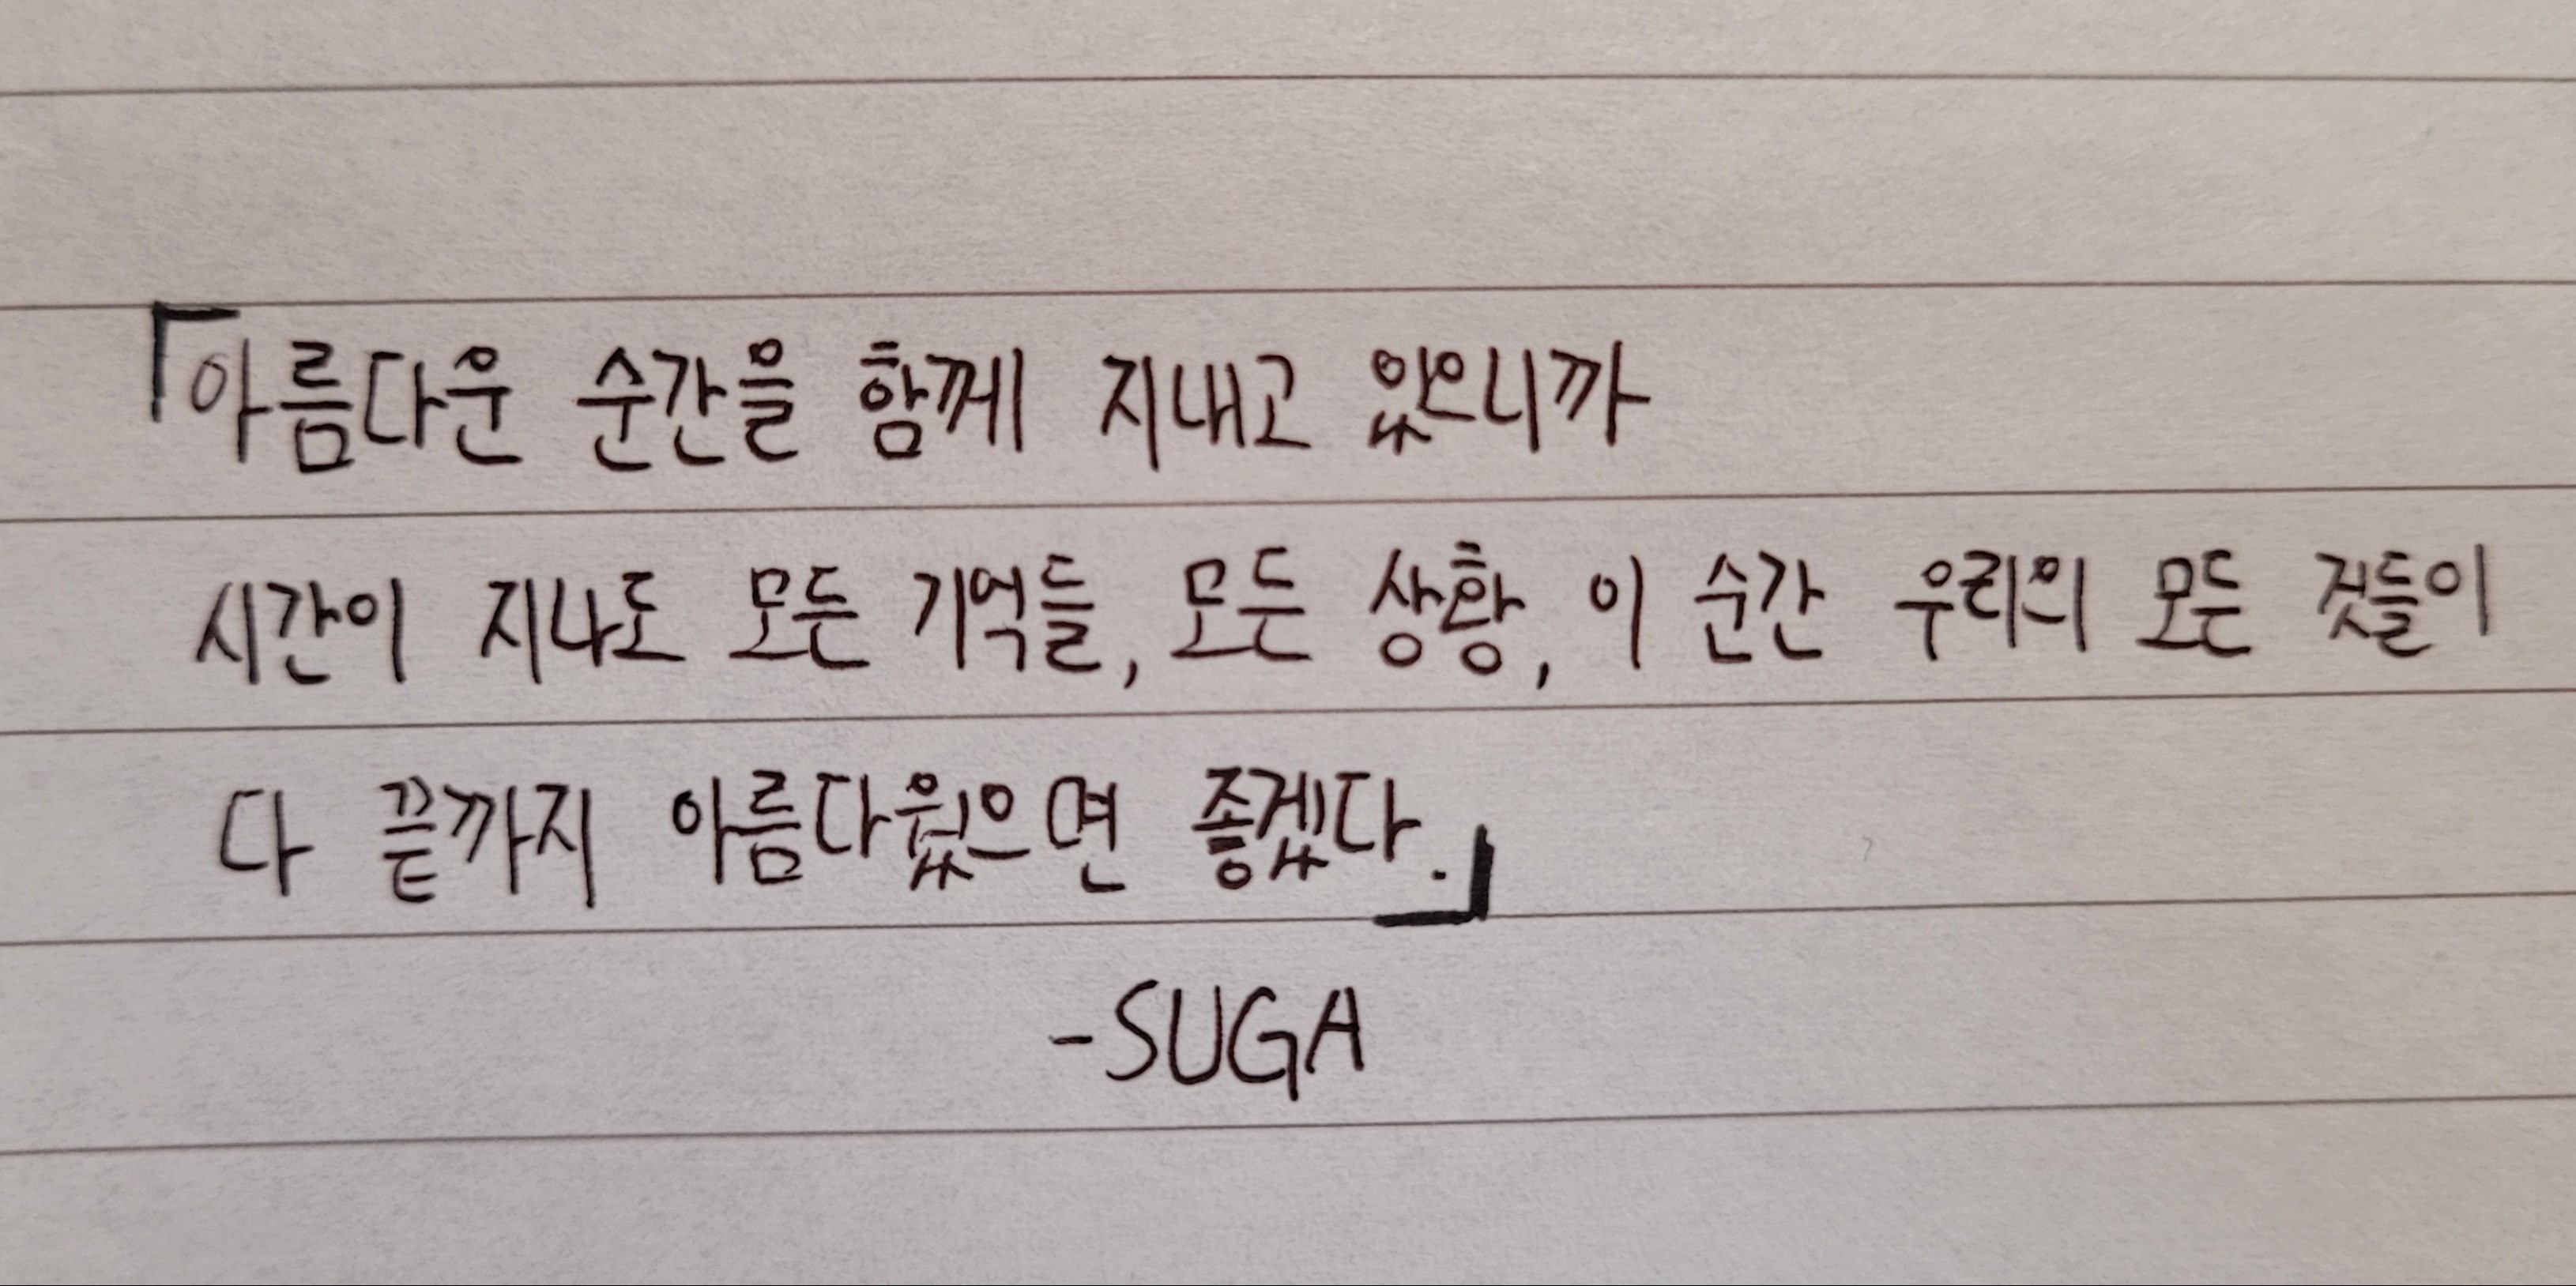 「아름다운 순간을 함께 지내고 있으니까
시간이 지나도 모든 기억들, 모든 상황, 이 순간 우리의 모든 것들이
다 끝까지 아름다웠으면 좋겠다.」
-SUGA